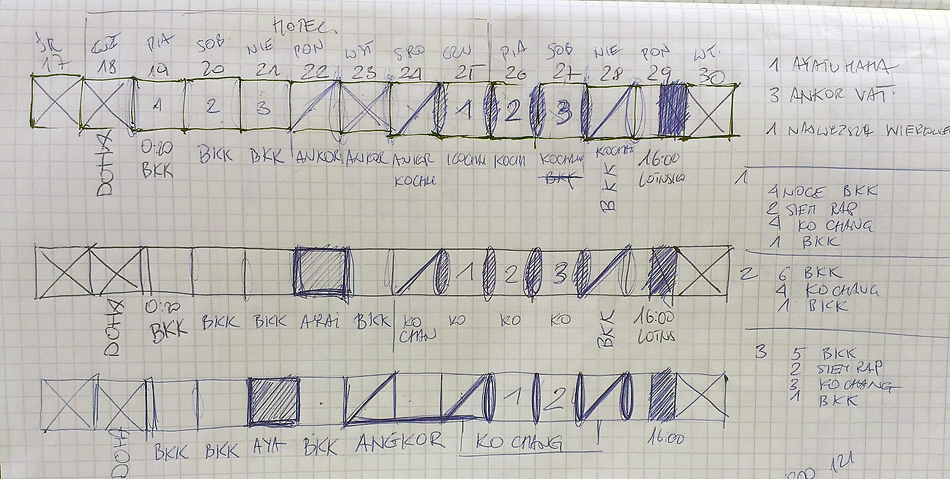 HOTEL
ŚR CZW PIĄ SOB NIE PON WT ŚRO CZW PIĄ SOB NIE PON WT.
17 18 19 20 21 22 23 24 25 26 27 28 29 30
1 2 3 1 2 3
DOHA 0:20 BKK BKK BKK ANKOR ANKOR ANKOR KOCHH KOCH KOCHH KOCHH 16:00
KOCHH BKK BKK LOTNISKO
1 AYATUHAHA
3 ANKOR VAT.
1
1
4 NOCE BKK
2 SIEM RAP
4 KO CHANG
1 BKK
1 2 3
DOHA 0:20 BKK BKK BKK ARAI BKK KO CHAN KO KO KO BKK 16:00 LOTNS
2
6 BKK
4 KO CHANG
1 BKK
1 2
DOHA BKK BKK AYA BKK ANGKOR KO CHANG 16:00
3
5 BKK
2 SIEM RAP
3 KO CHANG
1 BKK
121